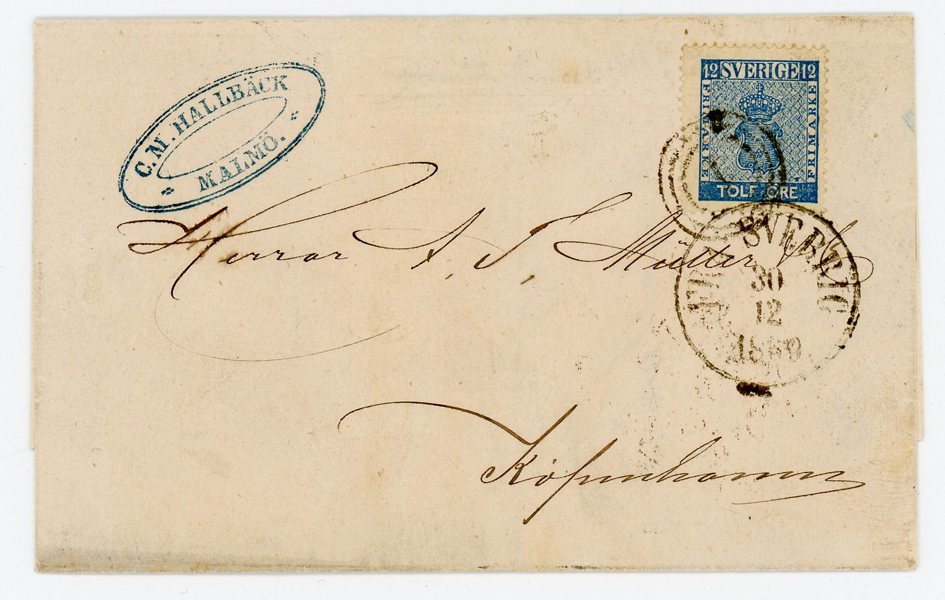 C. M. HALLBÄCK
MALMÖ.
12 SVERIGE 12
FRIMÄRKE
FRIMÄRKE
TOLF ÖRE
SVERRIG
30
12
Herrar A. P. Müller
Köpenhamn